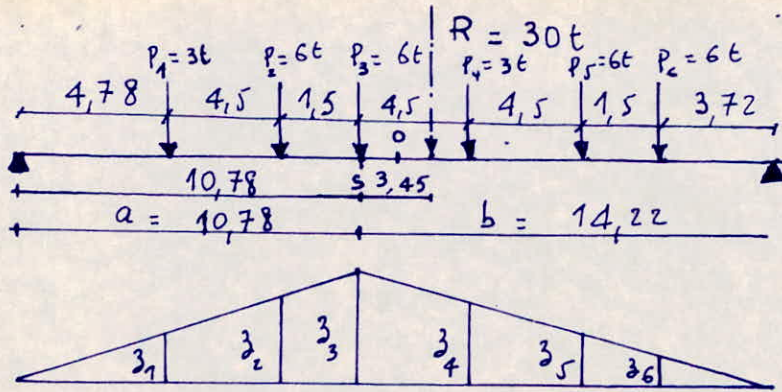 R = 30t
P1 = 3t P2 = 6t P3 = 6t P4 = 3t P5 = 6t P6 = 6t
4,78 4,5 1,5 4,5 4,5 1,5 3,72
o
10,78 S 3,45
a = 10,78 b = 14,22
z1 z2 z3 z4 z5 z6